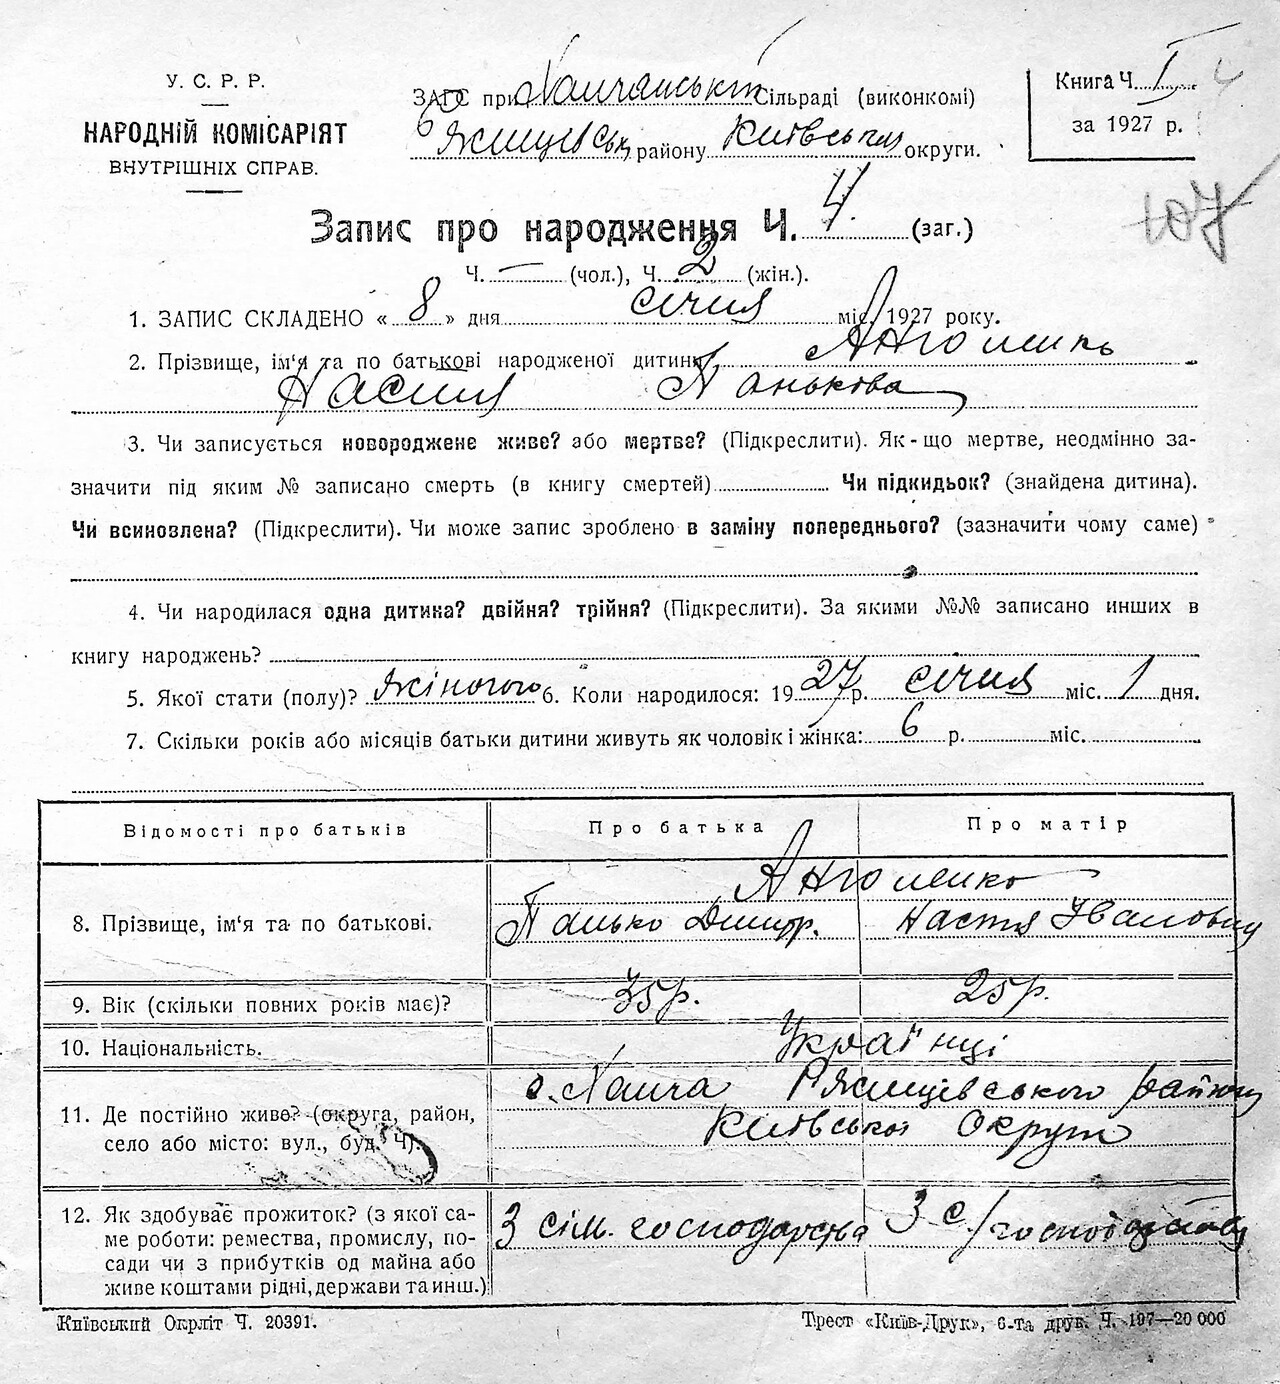 У. С. Р. Р.
НАРОДНІЙ КОМІСАРІЯТ
ВНУТРІШНІХ СПРАВ.
ЗАГС при Халчанській Сільраді (виконкомі)
району Київської округи.
Книга Ч. I
за 1927 р.
107
Запис про народження Ч. 4. (заг.)
Ч. — (чол.), Ч. 2 (жін.).
1. ЗАПИС СКЛАДЕНО « 8 » дня січня міс. 1927 року.
2. Прізвище, ім'я та по батькові народженої дитини
Панькова
3. Чи записується новороджене живе? або мертве? (Підкреслити). Як-що мертве, неодмінно за-
значити під яким № записано смерть (в книгу смертей) Чи підкидьок? (знайдена дитина).
Чи всиновлена? (Підкреслити). Чи може запис зроблено в заміну попереднього? (зазначити чому саме)
4. Чи народилася одна дитина? двійня? трійня? (Підкреслити). За якими №№ записано инших в
книгу народжень?
5. Якої стати (полу)? жіночого 6. Коли народилося: 1927 р. січня міс. 1 дня.
7. Скільки років або місяців батьки дитини живуть як чоловік і жінка: 6 р. міс.
Відомості про батьків Про батька Про матір
8. Прізвище, ім'я та по батькові.
Панько Дмитр. Настя Івановну
9. Вік (скільки повних років має)? 35 р. 25 р.
10. Національність. Українці
11. Де постійно живе? (округа, район,
село або місто: вул., буд. Ч).
с. Халча Ржищівського району
Київської Округи
12. Як здобуває прожиток? (з якої са-
ме роботи: ремества, промислу, по-
сади чи з прибутків од майна або
живе коштами рідні, держави та инш.)
З сіл. господарства З с/господарства
Київський Окрліт Ч. 20391.
Трест «Київ-Друк», 6-та друк. Ч. 197—20 000